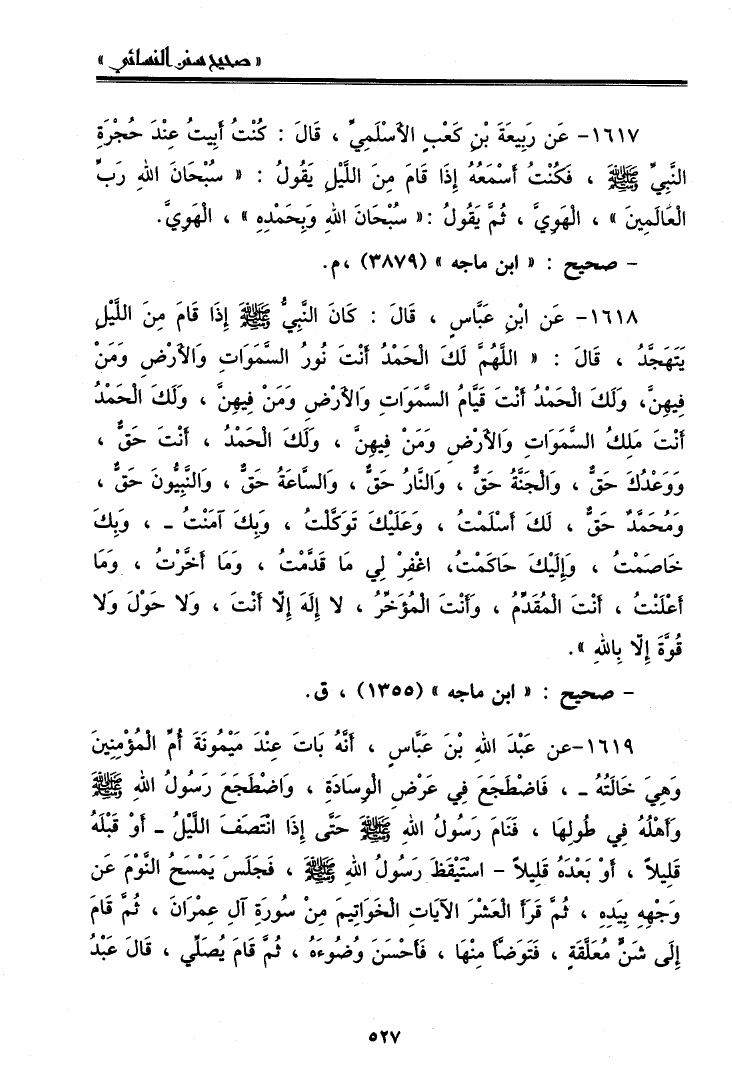 « صحيح سنن النسائي »
١٦١٧- عَن رَبِيعَةَ بْنِ كَعْبٍ الأَسْلَمِيِّ ، قَالَ : كُنْتُ أَبِيتُ عِنْدَ حُجْرَةِ
النَّبِيِّ ﷺ ، فَكُنْتُ أَسْمَعُهُ إِذَا قَامَ مِنَ اللَّيْلِ يَقُولُ : « سُبْحَانَ اللهِ رَبِّ
الْعَالَمِينَ » ، الْهَوِيَّ ، ثُمَّ يَقُولُ :« سُبْحَانَ اللهِ وَبِحَمْدِهِ » ، الْهَوِيَّ.
- صحيح : « ابن ماجه » (٣٨٧٩) ،م.
١٦١٨- عَن ابْنِ عَبَّاسٍ ، قَالَ : كَانَ النَّبِيُّ ﷺ إِذَا قَامَ مِنَ اللَّيْلِ
يَتَهَجَّدُ ، قَالَ : « اللَّهُمَّ لَكَ الْحَمْدُ أَنْتَ نُورُ السَّمَوَاتِ وَالأَرْضِ وَمَنْ
فِيهِنَّ، وَلَكَ الْحَمْدُ أَنْتَ قَيَّامُ السَّمَوَاتِ وَالأَرْضِ وَمَنْ فِيهِنَّ ، وَلَكَ الْحَمْدُ
أَنْتَ مَلِكُ السَّمَوَاتِ وَالأَرْضِ وَمَنْ فِيهِنَّ ، وَلَكَ الْحَمْدُ ، أَنْتَ حَقٌّ ،
وَوَعْدُكَ حَقٌّ ، وَالْجَنَّةُ حَقٌّ ، وَالنَّارُ حَقٌّ ، وَالسَّاعَةُ حَقٌّ ، وَالنَّبِيُّونَ حَقٌّ ،
وَمُحَمَّدٌ حَقٌّ ، لَكَ أَسْلَمْتُ ، وَعَلَيْكَ تَوَكَّلْتُ ، وَبِكَ آمَنْتُ ـ ، وَبِكَ
خَاصَمْتُ ، وَإِلَيْكَ حَاكَمْتُ، اغْفِرْ لِي مَا قَدَّمْتُ ، وَمَا أَخَّرْتُ ، وَمَا
أَعْلَنْتُ ، أَنْتَ الْمُقَدِّمُ ، وَأَنْتَ الْمُؤَخِّرُ ، لا إِلَهَ إِلّا أَنْتَ ، وَلا حَوْلَ وَلا
قُوَّةَ إِلّا بِاللهِ ».
- صحيح : « ابن ماجه » (١٣٥٥) ، ق.
١٦١٩-عن عَبْدَ اللهِ بْنَ عَبَّاسٍ ، أَنَّهُ بَاتَ عِنْدَ مَيْمُونَةَ أُمِّ الْمُؤْمِنِينَ
وَهِيَ خَالَتُهُ ـ ، فَاضْطَجَعَ فِي عَرْضِ الْوِسَادَةِ ، وَاضْطَجَعَ رَسُولُ اللهِ ﷺ
وَأَهْلُهُ فِي طُولِهَا ، فَنَامَ رَسُولُ اللهِ ﷺ حَتَّى إِذَا انْتَصَفَ اللَّيْلُ ـ أَوْ قَبْلَهُ
قَلِيلاً ، أَوْ بَعْدَهُ قَلِيلاً - اسْتَيْقَظَ رَسُولُ اللهِ ﷺ ، فَجَلَسَ يَمْسَحُ النَّوْمَ عَن
وَجْهِهِ بِيَدِهِ ، ثُمَّ قَرَأَ الْعَشْرَ الآيَاتِ الْخَوَاتِيمَ مِنْ سُورَةِ آلِ عِمْرَانَ ، ثُمَّ قَامَ
إِلَى شَنٍّ مُعَلَّقَةٍ ، فَتَوَضَّأَ مِنْهَا ، فَأَحْسَنَ وُضُوءَهُ ، ثُمَّ قَامَ يُصَلِّي ، قَالَ عَبْدُ
٥٢٧